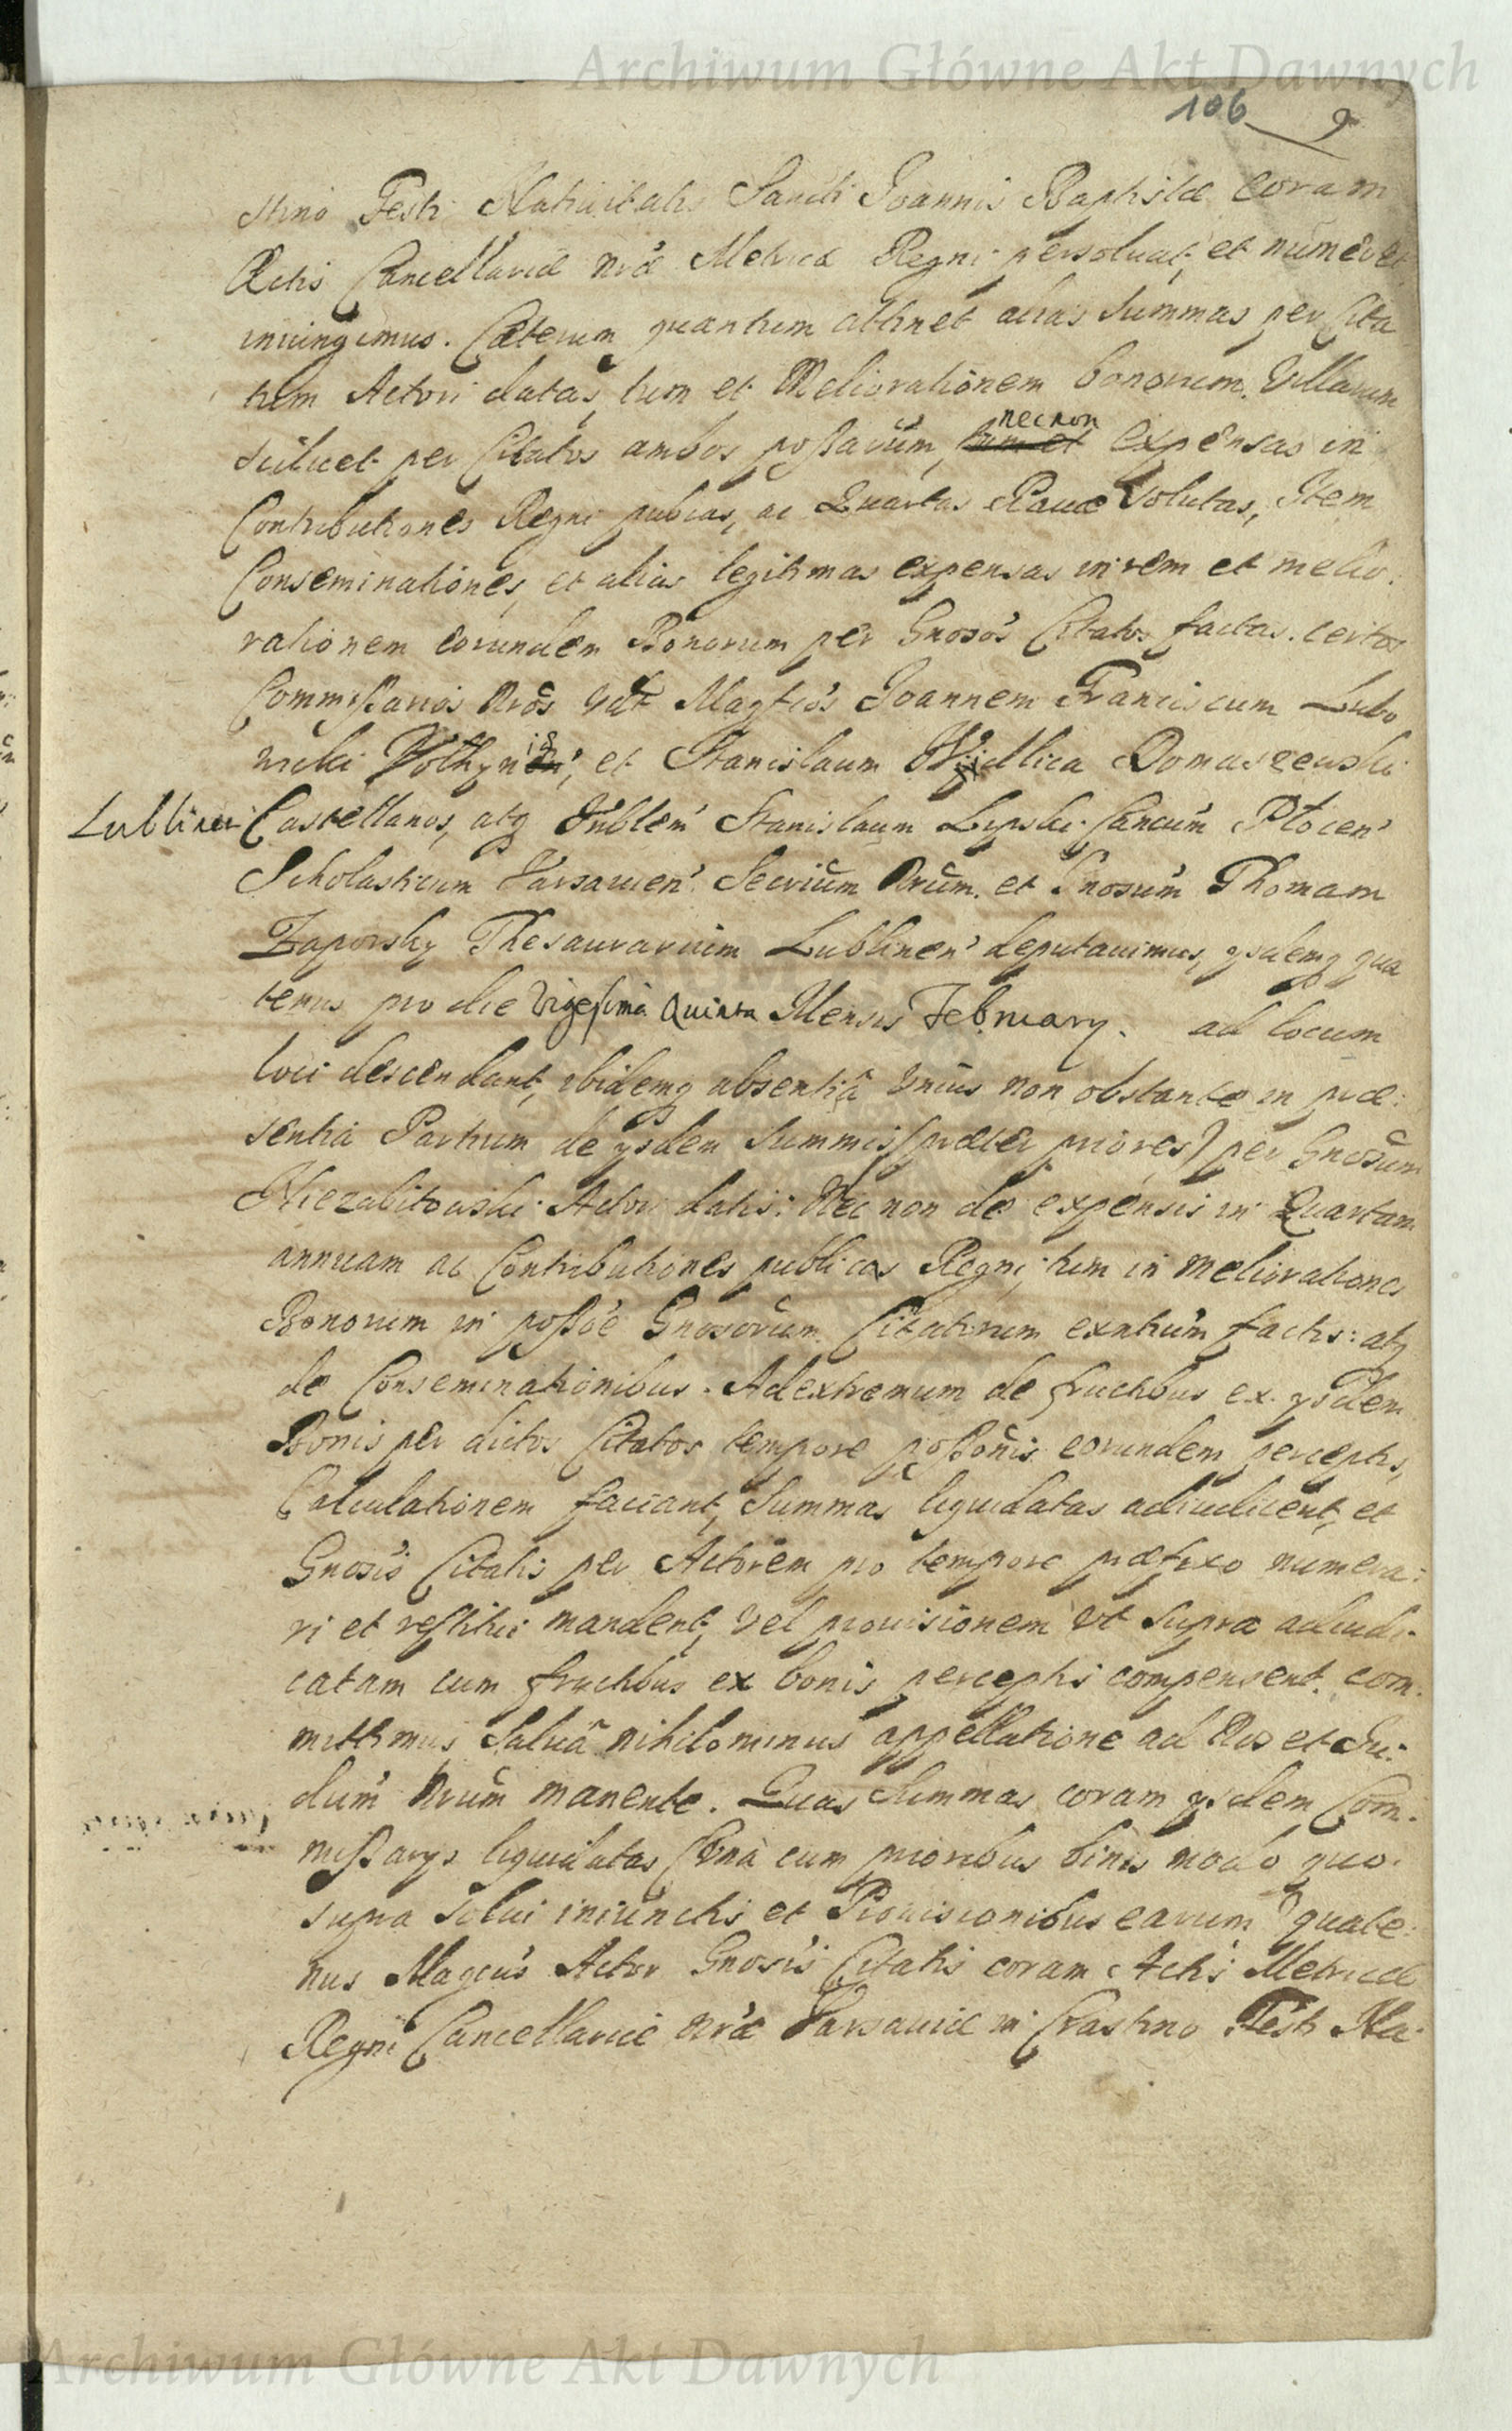 Archiwum Główne Akt Dawnych
106 9
stino Festi Nativitatis Sancti Joannis Baptistæ coram
Actis Cancellariæ nr̃æ Metricæ Regni persoluat, et numeret
iniungimus. Cæterum quantum attinet alias summas per Cita
tum Actori datas, tum et Meliorationem bonorum. Villarum
scilicet per Citatos ambos possarũm, tum et necnon expensas in
Contributiones Regni publicas, ac Quartas Ravæ Solutas, Item
Conseminationes, et alias legitimas expensas in rem et melio:
rationem eorundem Bonorum per Gnosos Citatos factas. certos
Commissarios nr̃os vdt Magficos Joannem Franciscum Lubo
wicki Volhynien̾ is, et Stanislaum Nidlica Domaszewski
Lublinen Castellanos, atq Stanislaum Lipski Cancũm Plocen̾
Scholasticum Varsavien̾ Secrium Nrũm. et Gnosum Thomam
Zaporsky Thesaurarium Lublinen̾ deputavimus, ysdemq qua
tenus pro die Vigesima Quinta Mensis February. ad locum
loci descendant, ibidemq absentiâ vnius non obstante in præ:
sentia Partium de ysdem summis (præter priores) per Gnosum
Niezabitowski Actori datis: Nec non de expensis in Quartam
annuam ac Contributiones publicas Regni, tum in meliorationes
Bonorum in possoe Gnosorum Citatorum exntium factis: atq
de Conseminationibus. Ad extremum de fructibus ex ysdem
Bonis per dictos Citatos tempore possonis eorundem perceptis,
Calculationem faciant, Summas liquidatas adiudicent, et
Gnosis Citatis per Actorem pro tempore præfixo numera:
ri et restitui mandent, vel prouisionem vt supra adiudi:
catam cum fructibus ex bonis perceptis compensent. com:
mittimus Salvâ nihilominus appellatione ad Nos et Iu:
dium Nrũm manente. Quas Summas coram ysdem Com:
missarys liquidatas (vnà cum prioribus binis modo quo
supra solui iniunctis et Prouisionibus earum) quate:
nus Magcus Actor Gnosis Citatis coram Actis Metricæ
Regni Cancellariæ nr̃æ Varsaviæ in Crastino Festi Na:
Archiwum Główne Akt Dawnych